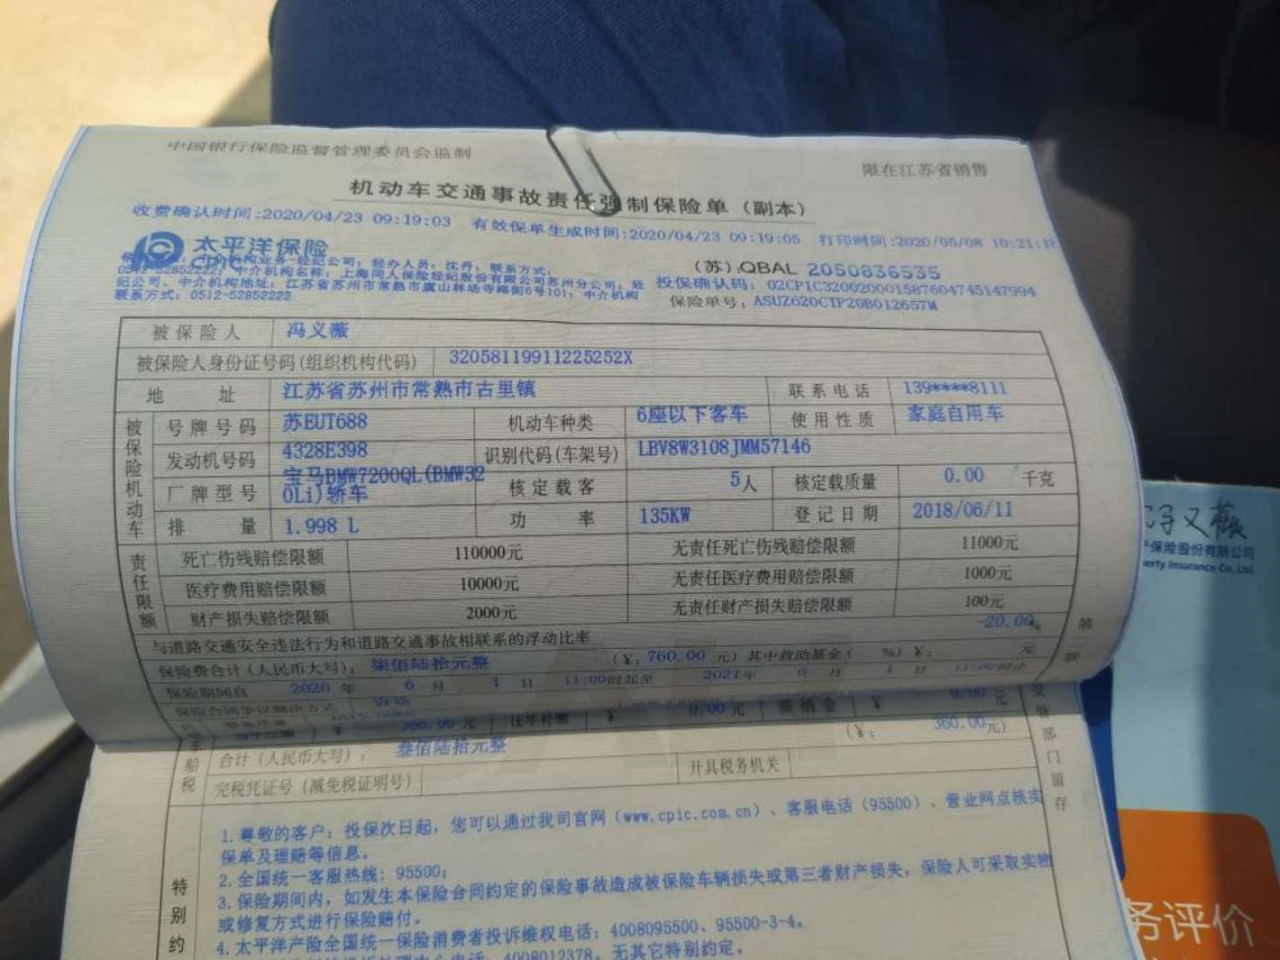 中国银行保险监督管理委员会监制
限在江苏省销售
机动车交通事故责任强制保险单（副本）
收费确认时间:2020/04/23 09:19:03 有效保单生成时间:2020/04/23 09:19:05 打印时间:2020/05/08 10:21:1
太平洋保险
CPIC
经办人员：沈丹；联系方式：
0512-52852222；中介机构名称：上海同人保险经纪股份有限公司苏州分公司；经
纪公司、中介机构地址：江苏省苏州市常熟市虞山林场寺路街6号101；中介机构
联系方式：0512-52852222
(苏):QBAL 2050836535
投保确认码：02CPIC320020001587604745147994
保险单号：ASUZ620CTP20B012657M
被保险人 冯义薇
被保险人身份证号码(组织机构代码) 32058119911225252X
地址 江苏省苏州市常熟市古里镇 联系电话 139****8111
被保险机动车
号牌号码 苏EUT688 机动车种类 6座以下客车 使用性质 家庭自用车
发动机号码 4328E398 识别代码(车架号) LBV8W3108JMM57146
厂牌型号 宝马BMW7200QL(BMW320Li)轿车 核定载客 5人 核定载质量 0.00 千克
排量 1.998 L 功率 135KW 登记日期 2018/06/11
责任限额
死亡伤残赔偿限额 110000元 无责任死亡伤残赔偿限额 11000元
医疗费用赔偿限额 10000元 无责任医疗费用赔偿限额 1000元
财产损失赔偿限额 2000元 无责任财产损失赔偿限额 100元
与道路交通安全违法行为和道路交通事故相联系的浮动比率 -20.00%
保险费合计(人民币大写)：柒佰陆拾元整 (￥：760.00 元) 其中救助基金( %)￥： 元
保险期间自 2020 年 6 月 1 日 11:00时起至 2021年 6 月 1 日 11:00时止
保险合同争议解决方式 诉讼
第
联
￥ 360.00 元 往年补缴 ￥ 0.00 元 滞纳金 ￥ 0.00 元
合计(人民币大写)：叁佰陆拾元整 (￥： 360.00元)
完税凭证号(减免税证明号) 开具税务机关
车船税
部门留存
特别约
1.尊敬的客户：投保次日起，您可以通过我司官网(www.cpic.com.cn)、客服电话(95500)、营业网点核实
保单及理赔等信息。
2.全国统一客服热线：95500；
3.保险期间内，如发生本保险合同约定的保险事故造成被保险车辆损失或第三者财产损失，保险人可采取实物
或修复方式进行保险赔付。
4.太平洋产险全国统一保险消费者投诉维权电话：4008095500、95500-3-4。
4008012378。无其它特别约定。
义薇
保险股份有限公司
erty Insurance Co., Ltd.
务评价